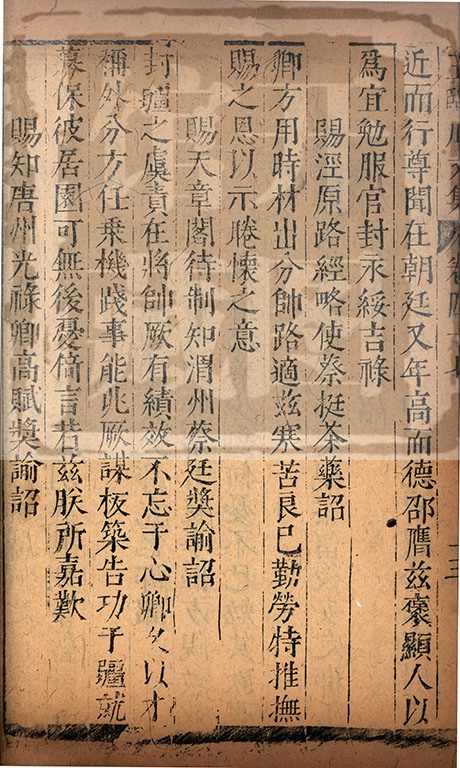 王臨川文集 卷四十七 三
近而行尊聞在朝廷又年高而德邵膺兹襃顯人以
爲宜勉服官封永綏吉祿
賜涇原路經略使蔡挺茶藥詔
卿方用時材出分帥路適兹寒苦良已勤勞特推撫
賜之恩以示睠懷之意
賜天章閣待制知渭州蔡廷獎諭詔
封疆之虞責在將帥厥有績效不忘于心卿久以才
稱外分方任乗機踐事能此厥謀板築告功于疆就
募保彼居圉可無後憂倚言若兹朕所嘉歎
賜知唐州光祿卿高賦獎諭詔